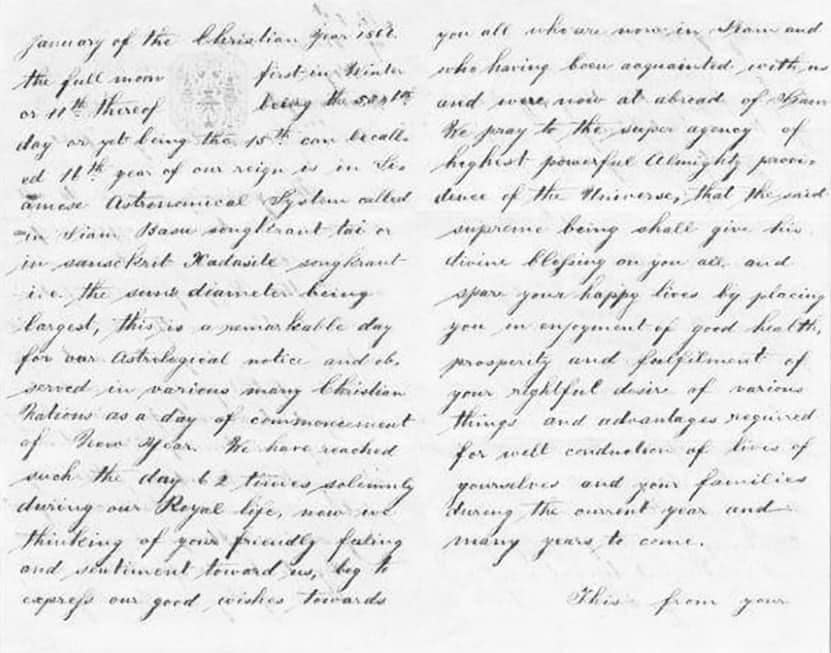 January of the Christian year 1866
the full moon first in Winter
or 11th thereof being the 5341th
day or yet being the 15th can be call-
ed 16th year of our reign is in Si-
amese Astronomical System called
in Siam Basu songkrant tai or
in sansckrit Kadasite songkrant
i.e. the suns diameter being
largest, this is a remarkable day
for our Astrological notice and ob-
served in various many Christian
Nations as a day of commencement
of New Year. We have reached
such the day 62 times solemnly
during our Royal life, now we
thinking of your friendly faling
and sentiment toward us, beg to
express our good wishes towards
you all who are now in Siam and
who having been acquainted with us
and were now at abroad of Siam
We pray to the super agency of
highest powerful Almighty provi-
dence of the Universe, that the said
supreme being shall give his
divine blessing on you all and
spare your happy lives by placing
you in enjoyment of good health,
prosperity and fulfilment of
your rightful desire of various
things and advantages required
for well conduction of lives of
yourselves and your families
during the current year and
many years to come.
This from your